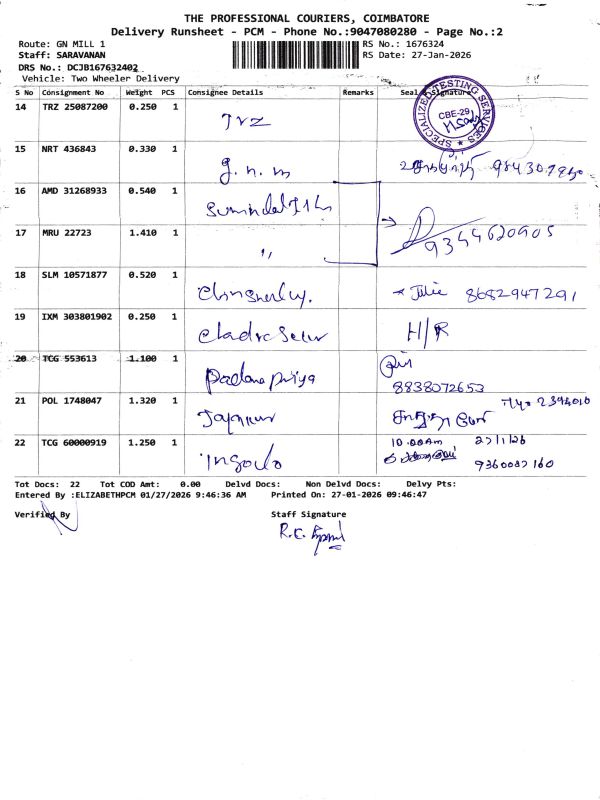 THE PROFESSIONAL COURIERS, COIMBATORE
Delivery Runsheet - PCM - Phone No.:9047080280 - Page No.:2
Route: GN MILL 1 RS No.: 1676324
Staff: SARAVANAN RS Date: 27-Jan-2026
DRS No.: DCJB167632402
Vehicle: Two Wheeler Delivery
S No Consignment No Weight PCS Consignee Details Remarks Seal & Signature
SPECIALIZED TESTING SERVICES
CBE-29
14 TRZ 25087200 0.250 1 TRZ
15 NRT 436843 0.330 1 g. n. m
16 AMD 31268933 0.540 1
17 MRU 22723 1.410 1 " 9344620905
18 SLM 10571877 0.520 1 Julie 8682947291
19 IXM 303801902 0.250 1 H/R
20 TCG 553613 1.100 1 Padma priya
8838072653
21 POL 1748047 1.320 1
22 TCG 60000919 1.250 1 10.00Am 27/1/26
9360037160
Tot Docs: 22 Tot COD Amt: 0.00 Delvd Docs: Non Delvd Docs: Delvy Pts:
Entered By :ELIZABETHPCM 01/27/2026 9:46:36 AM Printed On: 27-01-2026 09:46:47
Verified By Staff Signature